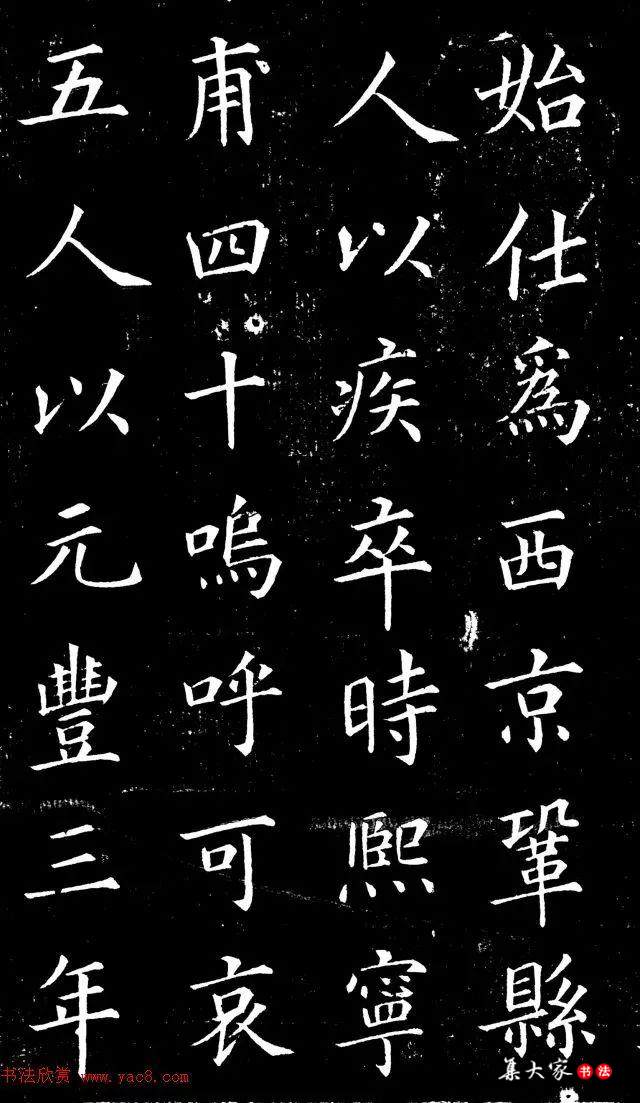 始仕為西京鞏縣
人以疾卒時熙寧
甫四十嗚呼可哀
五人以元豐三年
集大家书法
书法欣赏 www.yac8.com